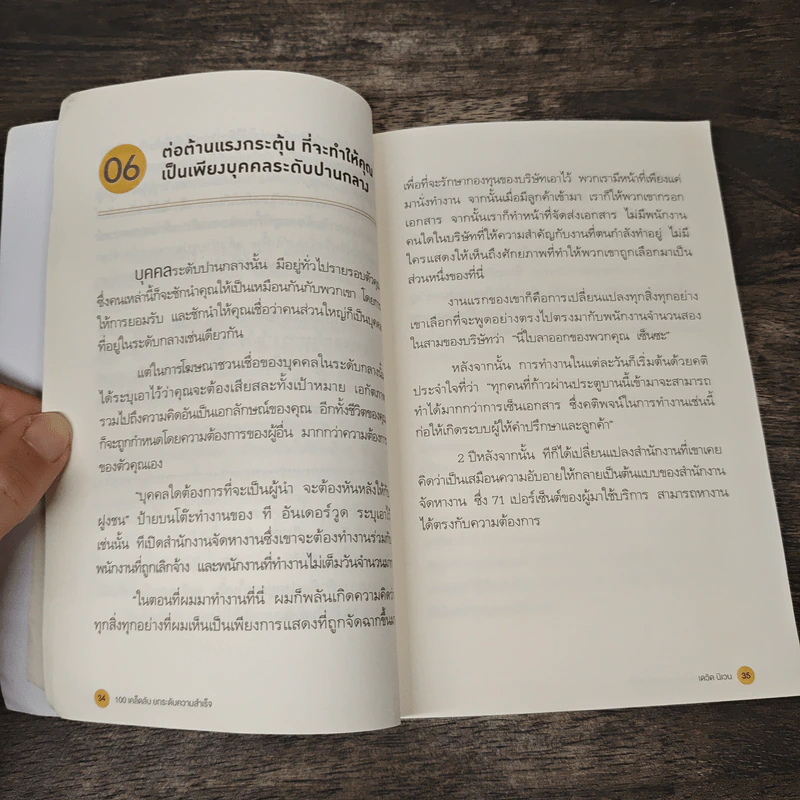 06
ต่อต้านแรงกระตุ้น ที่จะทำให้คุณ
เป็นเพียงบุคคลระดับปานกลาง
บุคคลระดับปานกลางนั้น มีอยู่ทั่วไปรายรอบตัวคุณ
ซึ่งคนเหล่านี้ก็จะชักนำคุณให้เป็นเหมือนกันกับพวกเขา โดยการ
ให้การยอมรับ และชักนำให้คุณเชื่อว่าคนส่วนใหญ่ก็เป็นบุคคล
ที่อยู่ในระดับกลางเช่นเดียวกัน
แต่ในการโฆษณาชวนเชื่อของบุคคลในระดับกลางนั้น
ได้ระบุเอาไว้ว่าคุณจะต้องเสียสละทั้งเป้าหมาย เอกัตภาพ
รวมไปถึงความคิดอันเป็นเอกลักษณ์ของคุณ อีกทั้งชีวิตของคุณ
ก็จะถูกกำหนดโดยความต้องการของผู้อื่น มากกว่าความต้องการ
ของตัวคุณเอง
"บุคคลใดต้องการที่จะเป็นผู้นำ จะต้องหันหลังให้กับ
ฝูงชน" ป้ายบนโต๊ะทำงานของ ที อันเดอร์วูด ระบุเอาไว้
เช่นนั้น ทีเปิดสำนักงานจัดหางานซึ่งเขาจะต้องทำงานร่วมกับ
พนักงานที่ถูกเลิกจ้าง และพนักงานที่ทำงานไม่เต็มวันจำนวนมาก
"ในตอนที่ผมมาทำงานที่นี่ ผมก็พลันเกิดความคิดว่า
ทุกสิ่งทุกอย่างที่ผมเห็นเป็นเพียงการแสดงที่ถูกจัดฉากขึ้นมา
34 100 เคล็ดลับ ยกระดับความสำเร็จ
เพื่อที่จะรักษากองทุนของบริษัทเอาไว้ พวกเรามีหน้าที่เพียงแค่
มานั่งทำงาน จากนั้นเมื่อมีลูกค้าเข้ามา เราก็ให้พวกเขากรอก
เอกสาร จากนั้นเราก็ทำหน้าที่จัดส่งเอกสาร ไม่มีพนักงาน
คนใดในบริษัทที่ให้ความสำคัญกับงานที่ตนกำลังทำอยู่ ไม่มี
ใครแสดงให้เห็นถึงศักยภาพที่ทำให้พวกเขาถูกเลือกมาเป็น
ส่วนหนึ่งของที่นี่
งานแรกของเขาก็คือการเปลี่ยนแปลงทุกสิ่งทุกอย่าง
เขาเลือกที่จะพูดอย่างตรงไปตรงมากับพนักงานจำนวนสอง
ในสามของบริษัทว่า "นี่ใบลาออกของพวกคุณ เซ็นซะ"
หลังจากนั้น การทำงานในแต่ละวันก็เริ่มต้นด้วยคติ
ประจำใจที่ว่า "ทุกคนที่ก้าวผ่านประตูบานนี้เข้ามาจะสามารถ
ทำได้มากกว่าการเซ็นเอกสาร ซึ่งคติพจน์ในการทำงานเช่นนี้
ก่อให้เกิดระบบผู้ให้คำปรึกษาและลูกค้า"
2 ปีหลังจากนั้น ทีก็ได้เปลี่ยนแปลงสำนักงานที่เขาเคย
คิดว่าเป็นเสมือนความอับอายให้กลายเป็นต้นแบบของสำนักงาน
จัดหางาน ซึ่ง 71 เปอร์เซ็นต์ของผู้มาใช้บริการ สามารถหางาน
ได้ตรงกับความต้องการ
เดวิด นิเวน 35